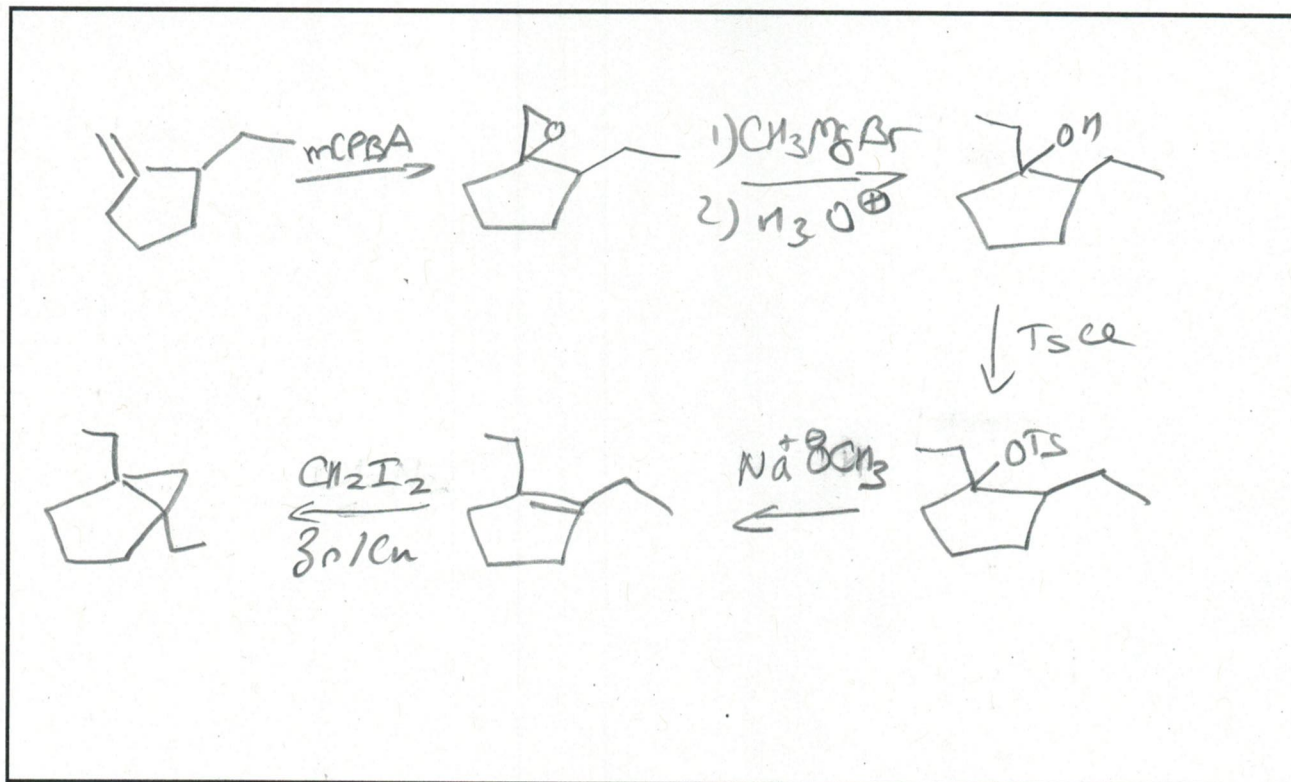 mCPBA
O
1) CH3MgBr
2) H3O⊕
OH
TsCl
OTS
Na⁺ ⊖OCH3
CH2I2
Zn/Cu